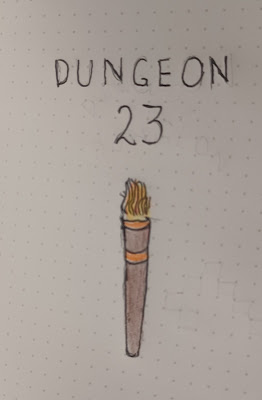 DUNGEON
23